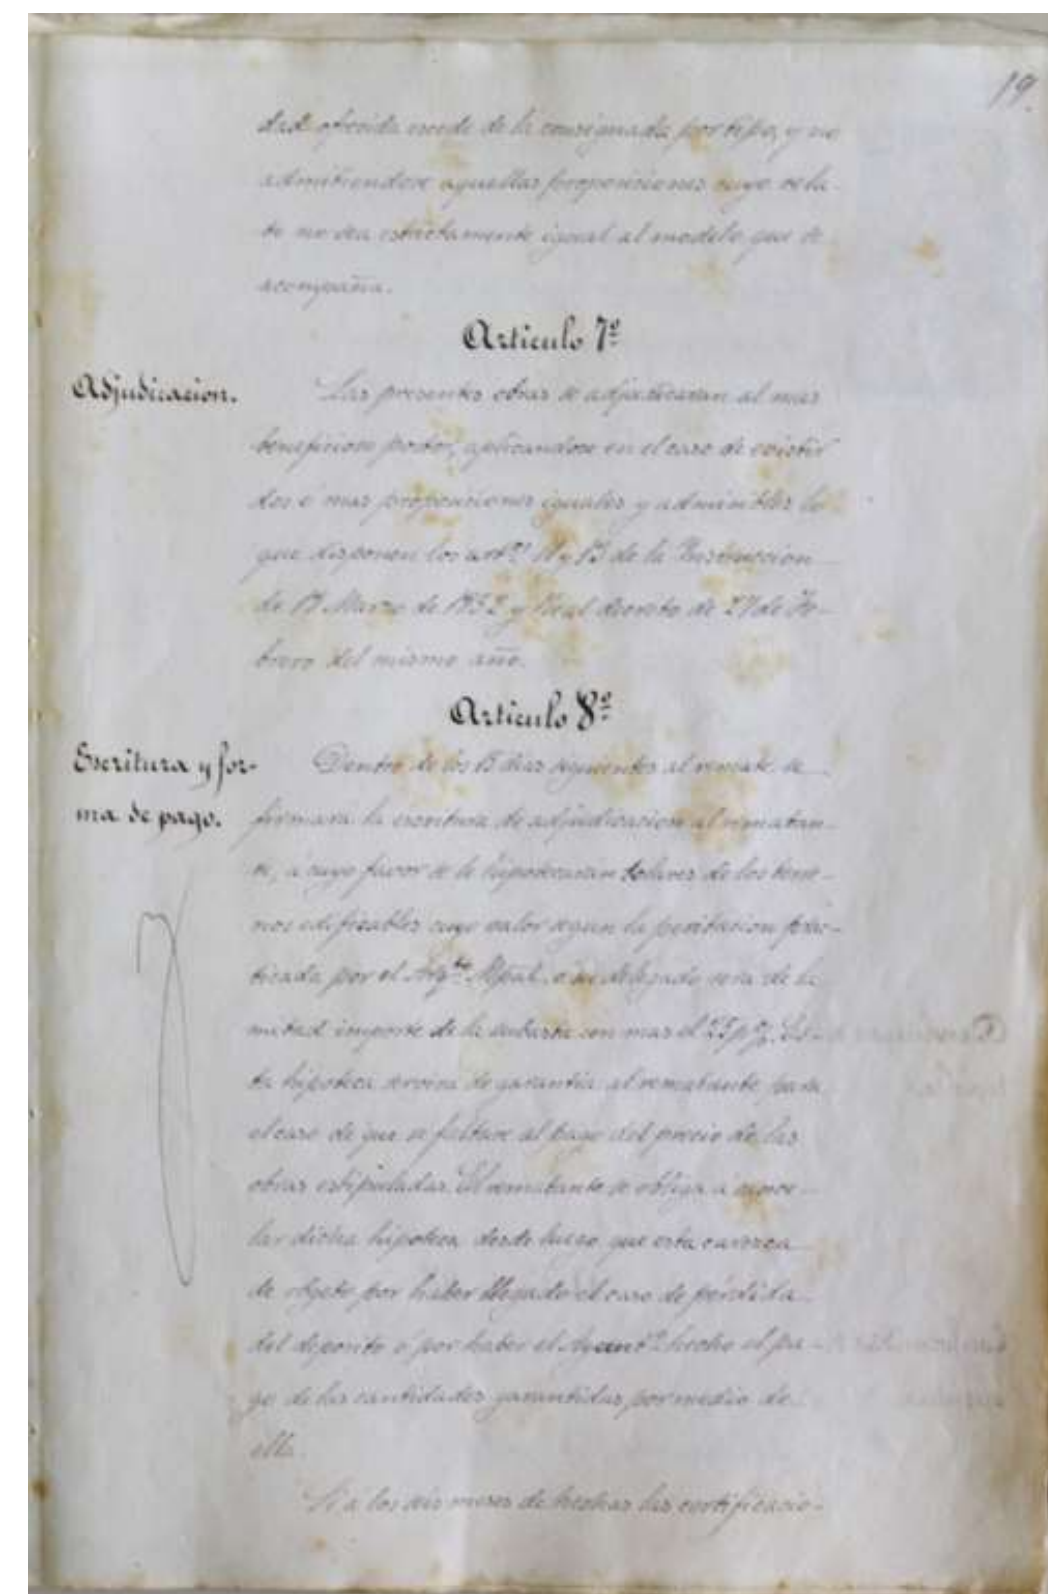 19.
dad ofrecida excede de la consignada por tipo, y no
admitiendose aquellas proposiciones cuyo rela-
to no sea estrictamente igual al modelo que se
acompaña.
Articulo 7º
Adjudicacion.
Las presentes obras se adjudicaran al mas
beneficioso postor, aplicandose en el caso de existir
dos ó mas proposiciones iguales y admisibles lo
que disponen los artºˢ y de la Instruccion
de Marzo de 1852 y Real decreto de 27 de Fe-
brero del mismo año.
Articulo 8º
Escritura y for-
ma de pago.
Dentro de los 15 dias siguientes al remate se
firmará la escritura de adjudicacion al rematan-
te, á cuyo favor se le hipotecarán solares de los terre-
nos edificables cuyo valor segun la peritacion prac-
ticada por el Arqᵗᵒ Mpal. ó su delegado sera de la
mitad importe de la subasta con mas el 25 p%. Es-
ta hipoteca servira de garantía al rematante para
el caso de que se faltare al pago del precio de las
obras estipuladas. El rematante se obliga á cance-
lar dicha hipoteca desde luego que esta carezca
de objeto por haber llegado el caso de pérdida
del deposito ó por haber el Ayuntº hecho el pa-
go de las cantidades garantidas por medio de
ella.
Si á los seis meses de hechas las certificacio-